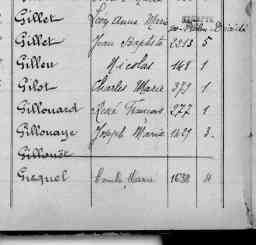 Gillet Anne Marie
Gillet Jean Baptiste 2313 5
Gilleu Nicolas 168 1
Gilot Charles Marie 373 1
Gillouard René François 277 1
Gillouaye Joseph Marie 1491 3
Gillouët
Grequel Emile Marie 1630 4